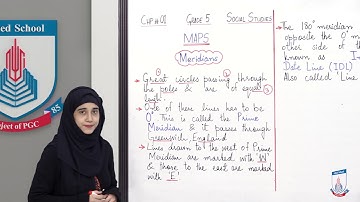 ed School
85
oject of PGC
CHP # 01 GRADE 5 SOCIAL STUDIES
MAPS
Meridians
Great circles passing through
the poles & are of equal
One of these lines has to be
0°. This is called the Prime
Meridian & it passes through
Greenwich, England
Lines drawn to the west of Prime
Meridian are marked with 'W'
& those to the east are marked
with 'E'
The 180° meridian
opposite the 0° m
other side of the
known as In
Date Line (IDL)
Also called 'Line